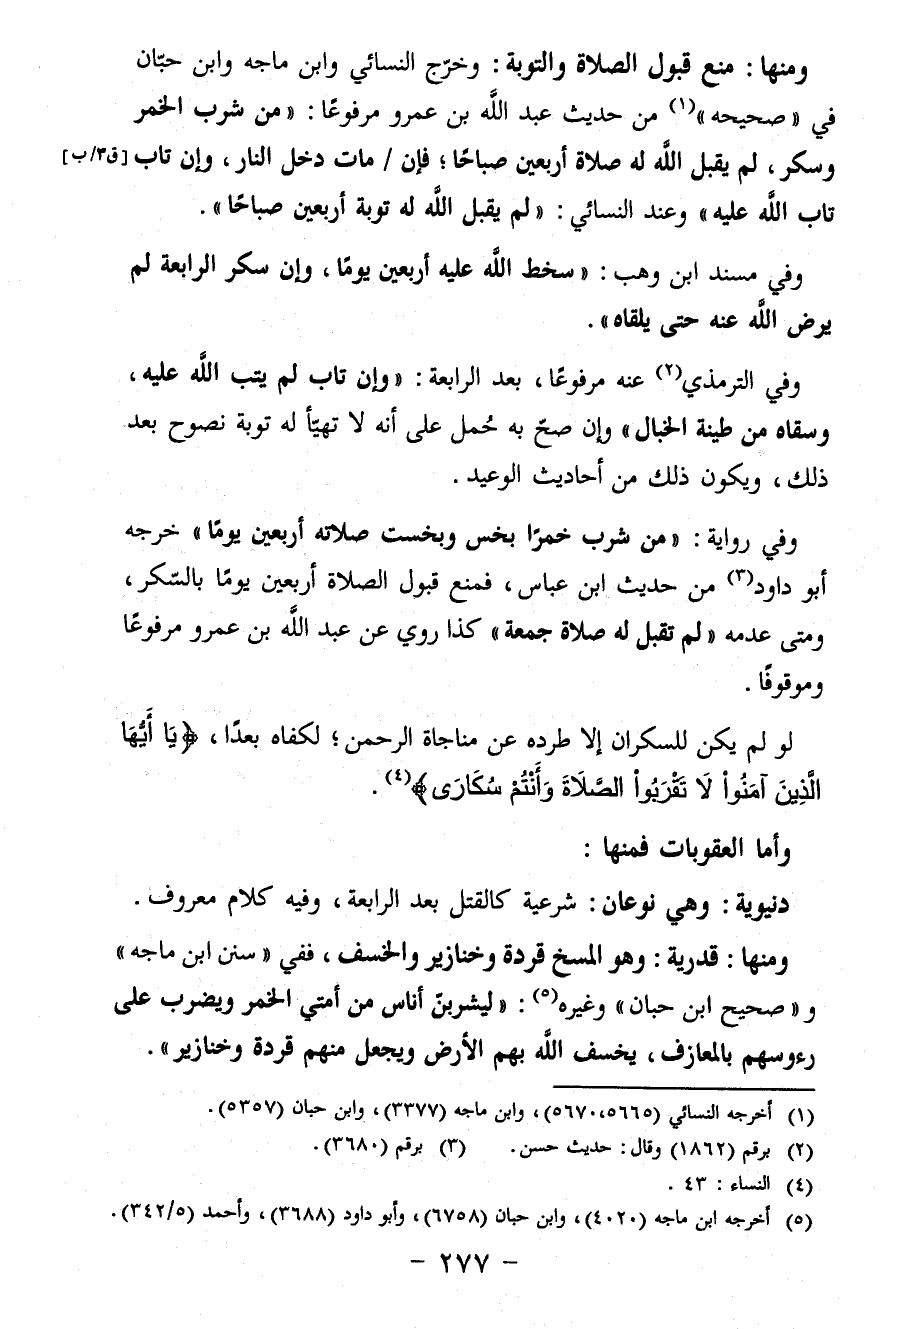 ومنها : منع قبول الصلاة والتوبة : وخرّج النسائي وابن ماجه وابن حبّان
في « صحيحه »(١) من حديث عبد اللَّه بن عمرو مرفوعًا : « من شرب الخمر
وسكر ، لم يقبل اللَّه له صلاة أربعين صباحًا ؛ فإن / مات دخل النار ، وإن تاب [ق٣/ب]
تاب اللَّه عليه » وعند النسائي : « لم يقبل اللَّه له توبة أربعين صباحًا » .
وفي مسند ابن وهب : « سخط اللَّه عليه أربعين يومًا ، وإن سكر الرابعة لم
يرض اللَّه عنه حتى يلقاه » .
وفي الترمذي(٢) عنه مرفوعًا ، بعد الرابعة : « وإن تاب لم يتب اللَّه عليه ،
وسقاه من طينة الخبال » وإن صحّ به حُمل على أنه لا تهيّأ له توبة نصوح بعد
ذلك ، ويكون ذلك من أحاديث الوعيد .
وفي رواية : « من شرب خمرًا بخس وبخست صلاته أربعين يومًا » خرجه
أبو داود(٣) من حديث ابن عباس ، فمنع قبول الصلاة أربعين يومًا بالسّكر ،
ومتى عدمه « لم تقبل له صلاة جمعة » كذا روي عن عبد اللَّه بن عمرو مرفوعًا
وموقوفًا .
لو لم يكن للسكران إلا طرده عن مناجاة الرحمن ؛ لكفاه بعدًا ، ﴿يَا أَيُّهَا
الَّذِينَ آمَنُواْ لَا تَقْرَبُواْ الصَّلَاةَ وَأَنْتُمْ سُكَارَى﴾(٤) .
وأما العقوبات فمنها :
دنيوية : وهي نوعان : شرعية كالقتل بعد الرابعة ، وفيه كلام معروف .
ومنها : قدرية : وهو المسخ قردة وخنازير والخسف ، ففي « سنن ابن ماجه »
و « صحيح ابن حبان » وغيره(٥) : « ليشربنّ أناس من أمتي الخمر ويضرب على
رءوسهم بالمعازف ، يخسف اللَّه بهم الأرض ويجعل منهم قردة وخنازير » .
(١) أخرجه النسائي (٥٦٦٥،٥٦٧٠) ، وابن ماجه (٣٣٧٧) ، وابن حبان (٥٣٥٧) .
(٢) برقم (١٨٦٢) وقال : حديث حسن . (٣) برقم (٣٦٨٠) .
(٤) النساء : ٤٣ .
(٥) أخرجه ابن ماجه (٤٠٢٠) ، وابن حبان (٦٧٥٨) ، وأبو داود (٣٦٨٨) ، وأحمد (٣٤٢/٥) .
- ٢٧٧ -